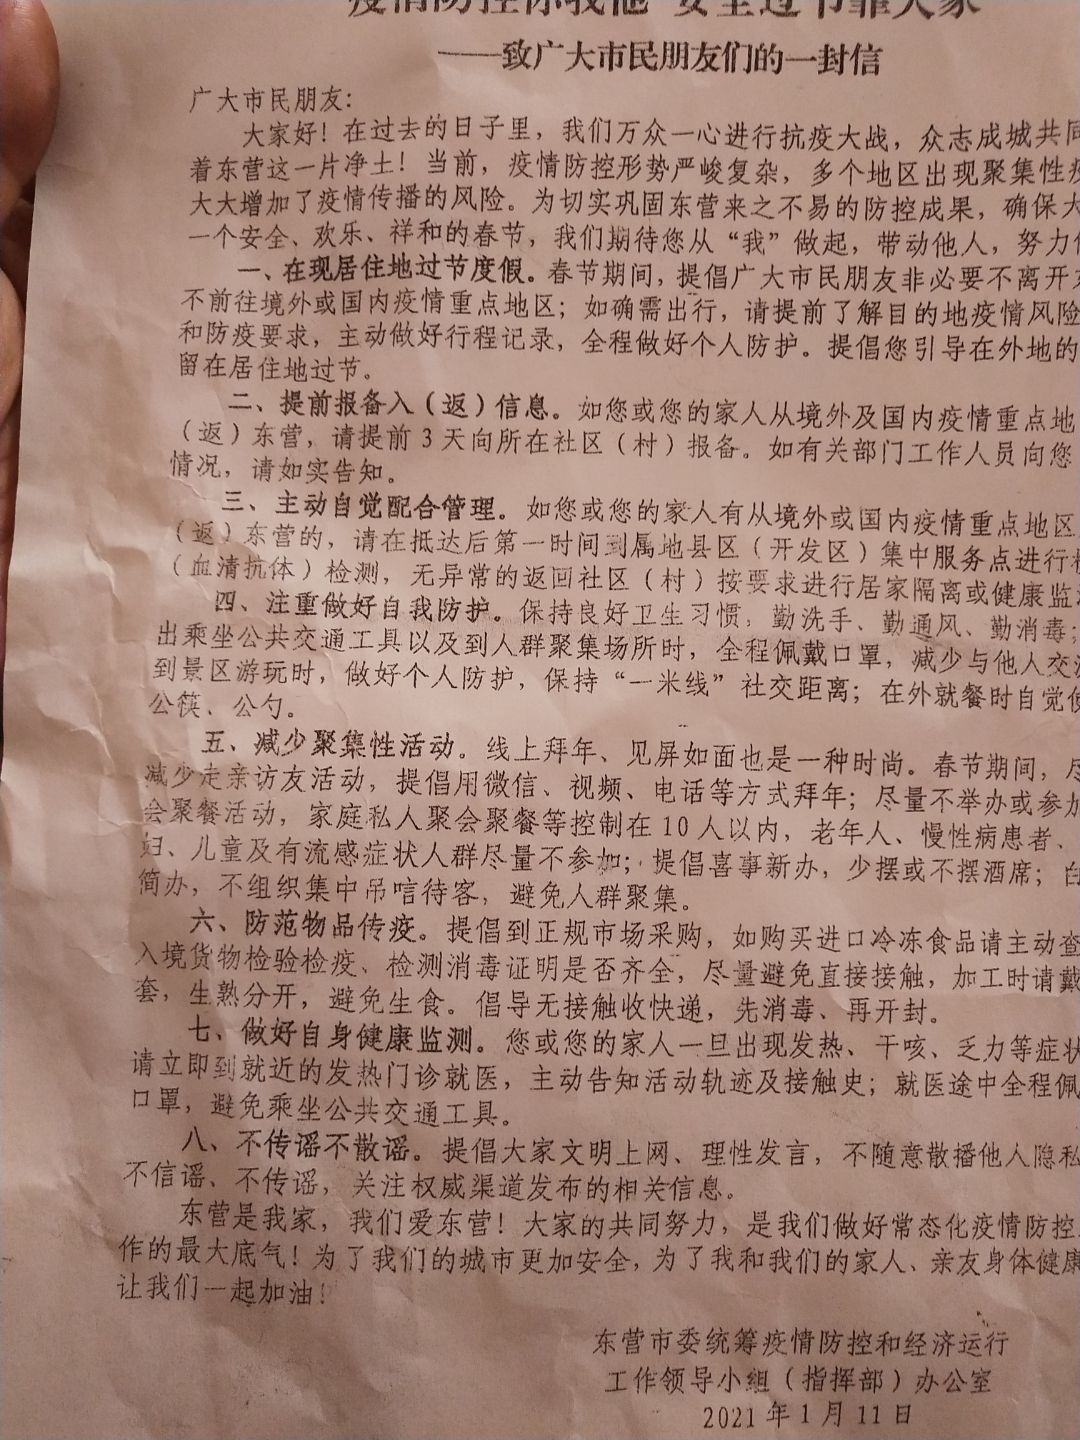 疫情防控你我他 安全过节靠大家
——致广大市民朋友们的一封信
广大市民朋友：
大家好！在过去的日子里，我们万众一心进行抗疫大战，众志成城共同
着东营这一片净土！当前，疫情防控形势严峻复杂，多个地区出现聚集性疫
大大增加了疫情传播的风险。为切实巩固东营来之不易的防控成果，确保大
一个安全、欢乐、祥和的春节，我们期待您从“我”做起，带动他人，努力
一、在现居住地过节度假。春节期间，提倡广大市民朋友非必要不离开东
不前往境外或国内疫情重点地区；如确需出行，请提前了解目的地疫情风险
和防疫要求，主动做好行程记录，全程做好个人防护。提倡您引导在外地的
留在居住地过节。
二、提前报备入（返）信息。如您或您的家人从境外及国内疫情重点地
（返）东营，请提前3天向所在社区（村）报备。如有关部门工作人员向您
情况，请如实告知。
三、主动自觉配合管理。如您或您的家人有从境外或国内疫情重点地区
（返）东营的，请在抵达后第一时间到属地县区（开发区）集中服务点进行核
（血清抗体）检测，无异常的返回社区（村）按要求进行居家隔离或健康监测
四、注重做好自我防护。保持良好卫生习惯，勤洗手、勤通风、勤消毒；
出乘坐公共交通工具以及到人群聚集场所时，全程佩戴口罩，减少与他人交流
到景区游玩时，做好个人防护，保持“一米线”社交距离；在外就餐时自觉使
公筷、公勺。
五、减少聚集性活动。线上拜年、见屏如面也是一种时尚。春节期间，尽
减少走亲访友活动，提倡用微信、视频、电话等方式拜年；尽量不举办或参加
会聚餐活动，家庭私人聚会聚餐等控制在10人以内，老年人、慢性病患者、
妇、儿童及有流感症状人群尽量不参加；提倡喜事新办，少摆或不摆酒席；白
简办，不组织集中吊唁待客，避免人群聚集。
六、防范物品传疫。提倡到正规市场采购，如购买进口冷冻食品请主动查
入境货物检验检疫、检测消毒证明是否齐全，尽量避免直接接触，加工时请戴
套，生熟分开，避免生食。倡导无接触收快递，先消毒、再开封。
七、做好自身健康监测。您或您的家人一旦出现发热、干咳、乏力等症状
请立即到就近的发热门诊就医，主动告知活动轨迹及接触史；就医途中全程佩
口罩，避免乘坐公共交通工具。
八、不传谣不散谣。提倡大家文明上网、理性发言，不随意散播他人隐私
不信谣、不传谣，关注权威渠道发布的相关信息。
东营是我家，我们爱东营！大家的共同努力，是我们做好常态化疫情防控
作的最大底气！为了我们的城市更加安全，为了我和我们的家人、亲友身体健康
让我们一起加油！
东营市委统筹疫情防控和经济运行
工作领导小组（指挥部）办公室
2021年1月11日